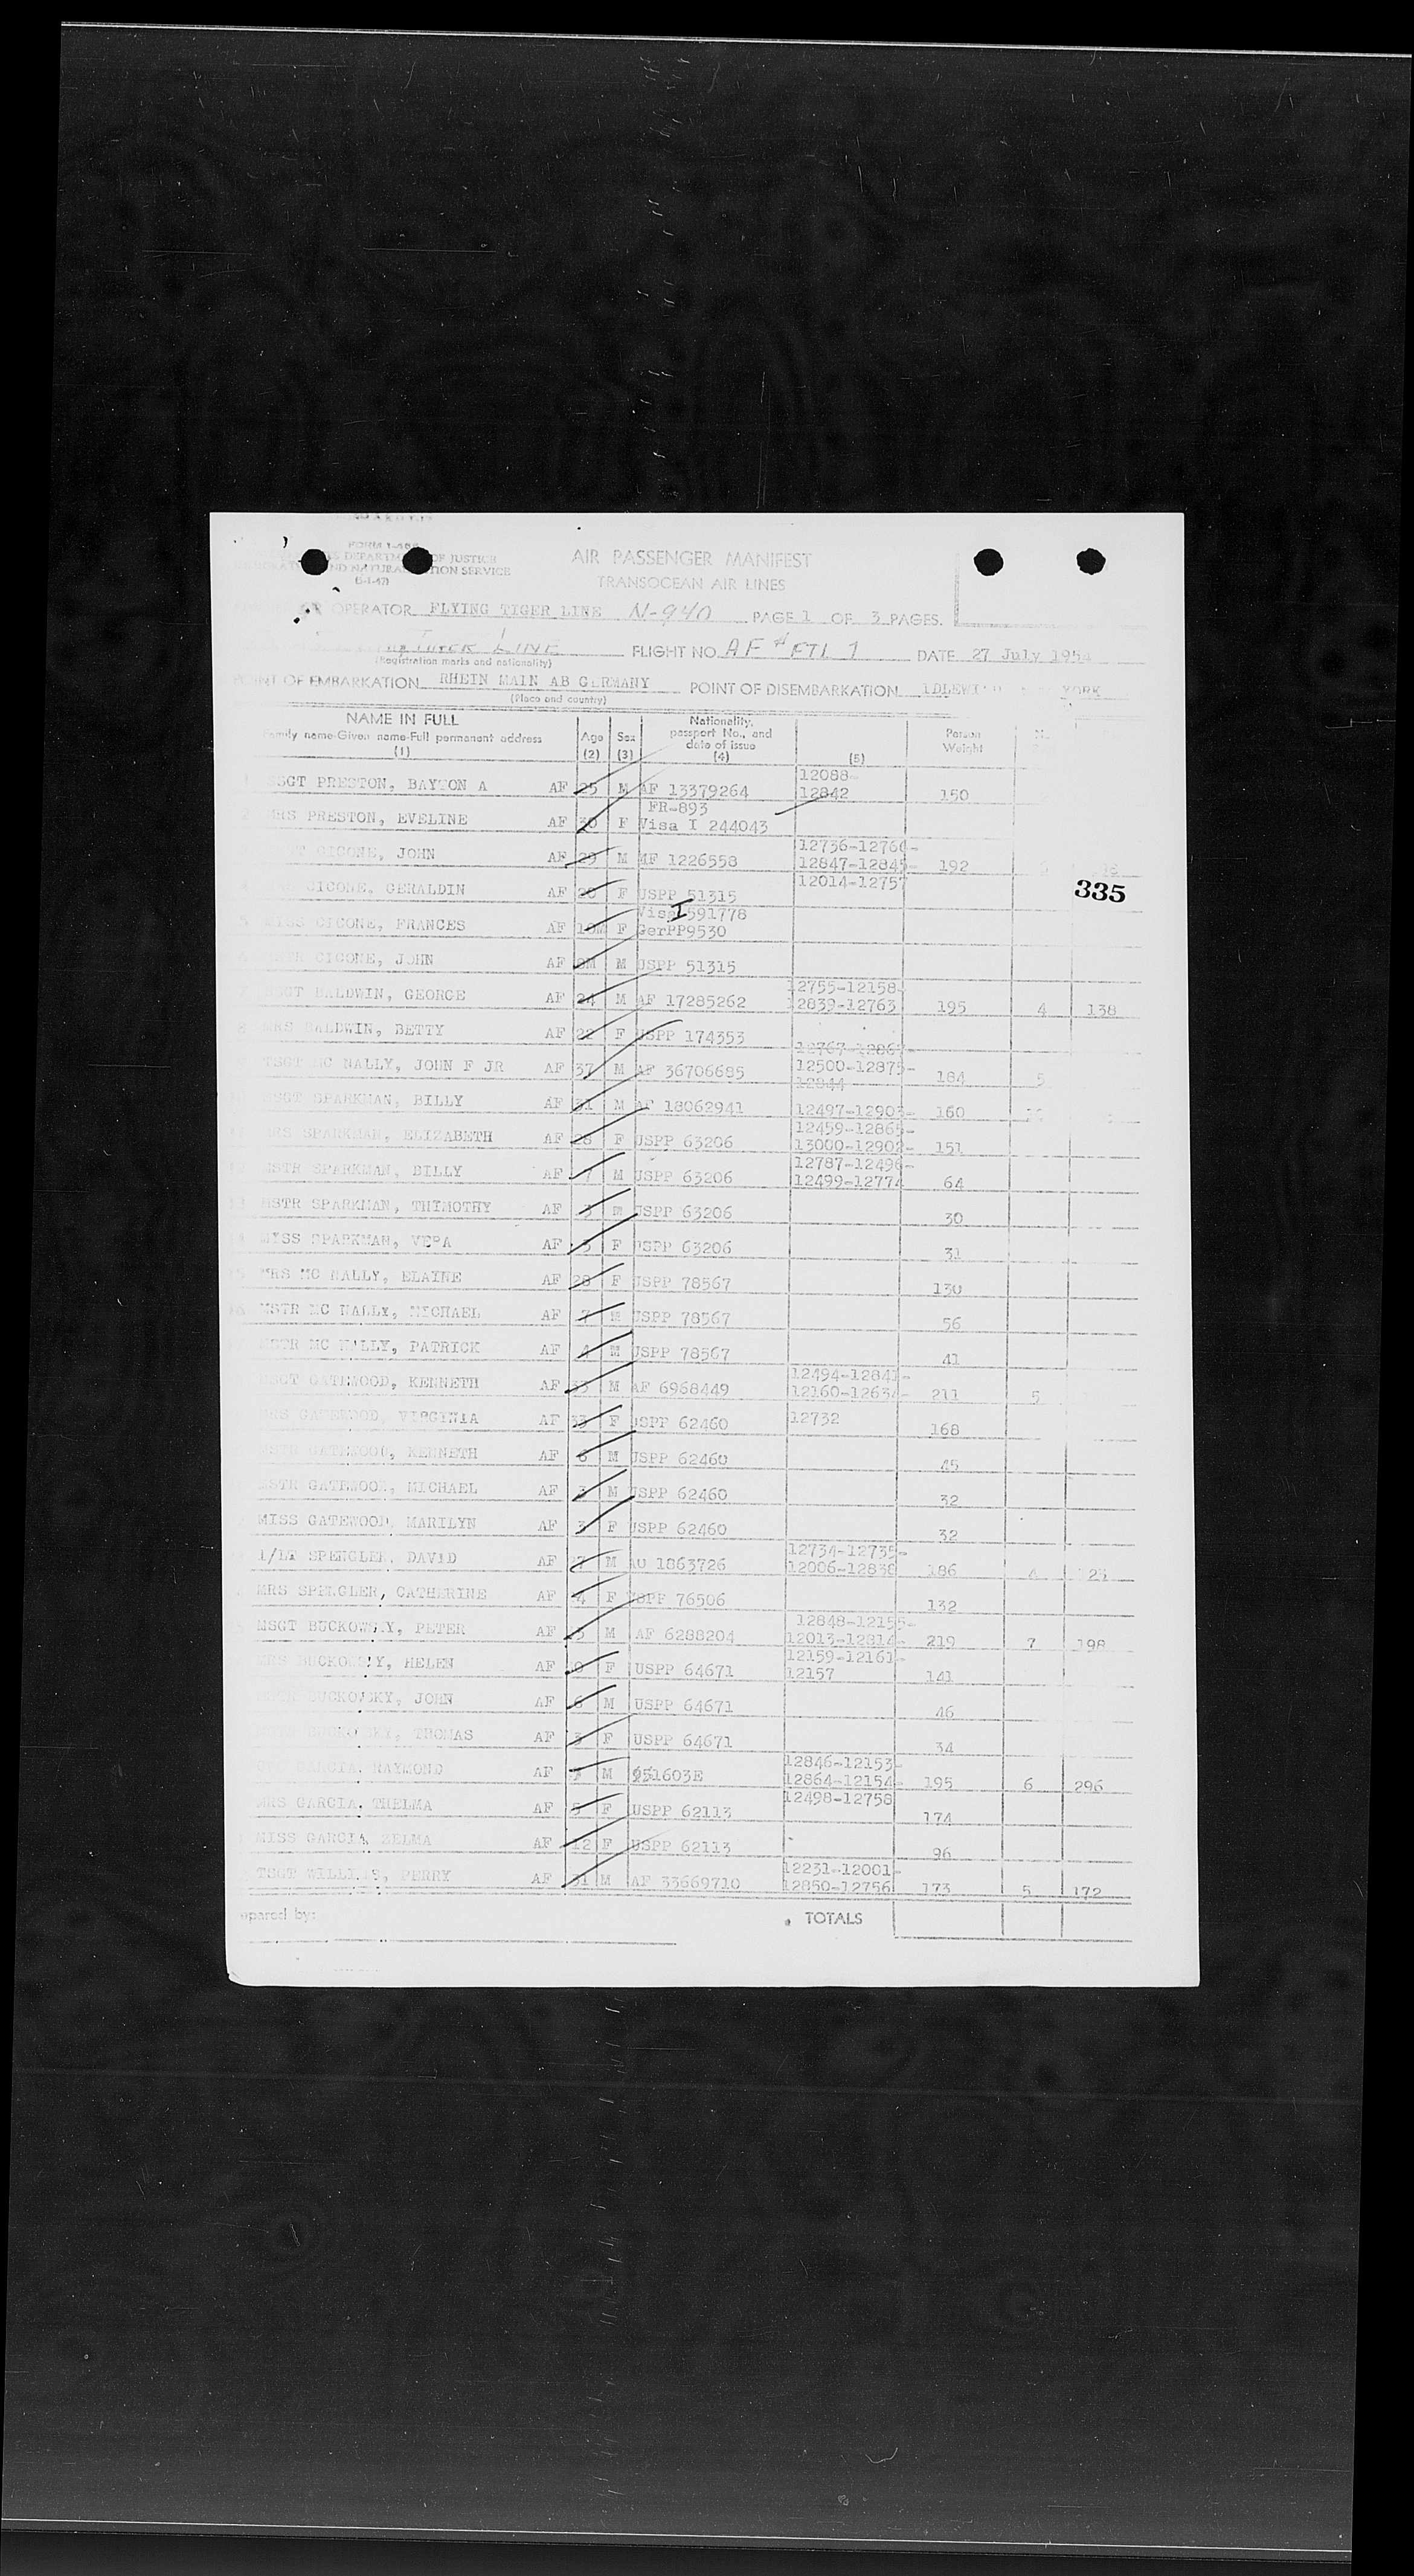 FORM I-466
DEPARTM OF JUSTICE
ND NATURA TION SERVICE
AIR PASSENGER MANIFEST
TRANSOCEAN AIR LINES
OPERATOR FLYING TIGER LINE N-940 PAGE 1 OF 3 PAGES.
TIGER LINE FLIGHT NO. AF # FTL 7 DATE 27 July 1954
(Registration marks and nationality)
POINT OF EMBARKATION RHEIN MAIN AB GERMANY POINT OF DISEMBARKATION IDLEWI YORK
(Place and country)
NAME IN FULL
Family name-Given name-Full permanent address
(1)
Age
(2)
Sex
(3)
Nationality,
passport No., and
date of issue
(4)
(5)
Person
Weight
SGT PRESTON, BAYTON A AF 25 M AF 13379264 12088- 12842 150
MRS PRESTON, EVELINE AF 30 F FR-893 Visa I 244043
CICONE, JOHN AF 29 M AF 1226558 12736-12760- 12847-12845- 192
335
CICONE, GERALDIN AF 28 F USPP 51315 12014-12757
MISS CICONE, FRANCES AF 10M F Visa I 591778 GerPP9530
CICONE, JOHN AF M USPP 51315
BALDWIN, GEORGE AF 24 M AF 17285262 12755-12158- 12839-12763 195 4 138
MRS BALDWIN, BETTY AF 22 F USPP 174353
TSGT MC NALLY, JOHN F JR AF 37 M AF 36706685 12767-12867- 12500-12875- 12844 184 5
SPARKMAN, BILLY AF 31 M AF 18062941 12497-12903- 160
MRS SPARKMAN, ELIZABETH AF 28 F USPP 63206 12459-12865- 13000-12902- 151
MSTR SPARKMAN, BILLY AF 7 M USPP 63206 12787-12496- 12499-12774 64
MSTR SPARKMAN, THIMOTHY AF 3 M USPP 63206 30
MISS SPARKMAN, VERA AF 3 F USPP 63206 31
MRS MC NALLY, ELAINE AF 28 F USPP 78567 130
MSTR MC NALLY, MICHAEL AF 7 M USPP 78567 56
MSTR MC NALLY, PATRICK AF 4 M USPP 78567 41
GATEWOOD, KENNETH AF 33 M AF 6968449 12494-12841- 12160-12634- 211 5
GATEWOOD, VIRGINIA AF 33 F USPP 62460 12732 168
MSTR GATEWOOD, KENNETH AF 6 M USPP 62460 45
MSTR GATEWOOD, MICHAEL AF 3 M USPP 62460 32
MISS GATEWOOD, MARILYN AF 3 F USPP 62460 32
1/LT SPENGLER, DAVID AF 7 M AO 1863726 12734-12735- 12006-12838 186 4 123
MRS SPENGLER, CATHERINE AF 4 F USPP 76506 132
MSGT BUCKOWSKY, PETER AF M AF 6288204 12848-12155- 12013-12814- 219 7 198
MRS BUCKOWSKY, HELEN AF F USPP 64671 12159-12161- 12157 141
BUCKOWSKY, JOHN AF 6 M USPP 64671 46
BUCKOWSKY, THOMAS AF 3 F USPP 64671 34
GARCIA, RAYMOND AF M 951603E 12846-12153- 12864-12154- 195 6 296
MRS GARCIA, THELMA AF 5 F USPP 62113 12498-12758 174
MISS GARCIA, ZELMA AF 12 F USPP 62113 96
TSGT WILLIS, PERRY AF 31 M AF 33669710 12231-12001- 12850-12756 173 5 172
epared by:
TOTALS